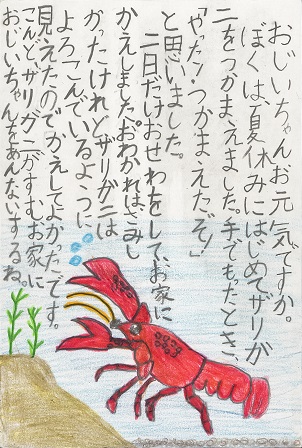 おじいちゃんお元気ですか。
ぼくは、夏休みにはじめてザリガ
ニをつかまえました。手でもったとき、
「やった!つかまえたぞ!」
と思いました。
二日だけおせわをして、お家に
かえしました。おわかれはさみし
かったけれどザリガニは
よろこんでいるように
見えたのでかえしてよかったです。
こんどザリガニがすむお家に
おじいちゃんをあんないするね。